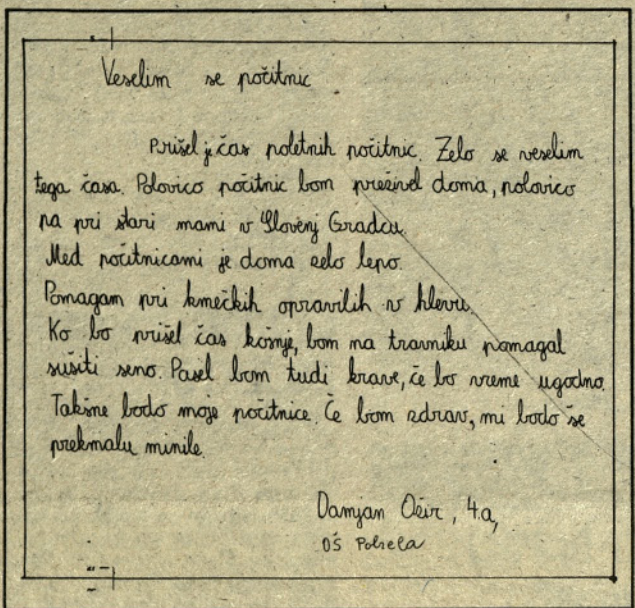 Veselim se počitnic
Prišel je čas poletnih počitnic. Zelo se veselim
tega časa. Polovico počitnic bom preživel doma, polovico
pa pri stari mami v Slovenj Gradcu.
Med počitnicami je doma zelo lepo.
Pomagam pri kmečkih opravilih v hlevu.
Ko bo prišel čas košnje, bom na travniku pomagal
sušiti seno. Pasel bom tudi krave, če bo vreme ugodno.
Takšne bodo moje počitnice. Če bom zdrav, mi bodo še
prekmalu minile.
Damjan 4.a,
OŠ Polzela